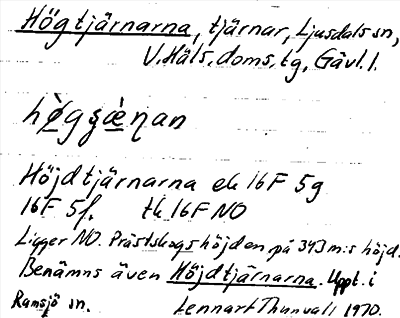 Högtjärnarna, tjärnar, Ljusdals sn,
V. Häls. doms. tg, Gävl. l.
hø̀gʂæ̀ɳan
Höjdtjärnarna ek 16F 5g
16F 5f. tk 16F NO
Ligger NO. Prästskogshöjden på 343 m:s höjd.
Benämns även Höjdtjärnarna. Uppt. i
Ramsjö sn. Lennart Thunvall 1970.